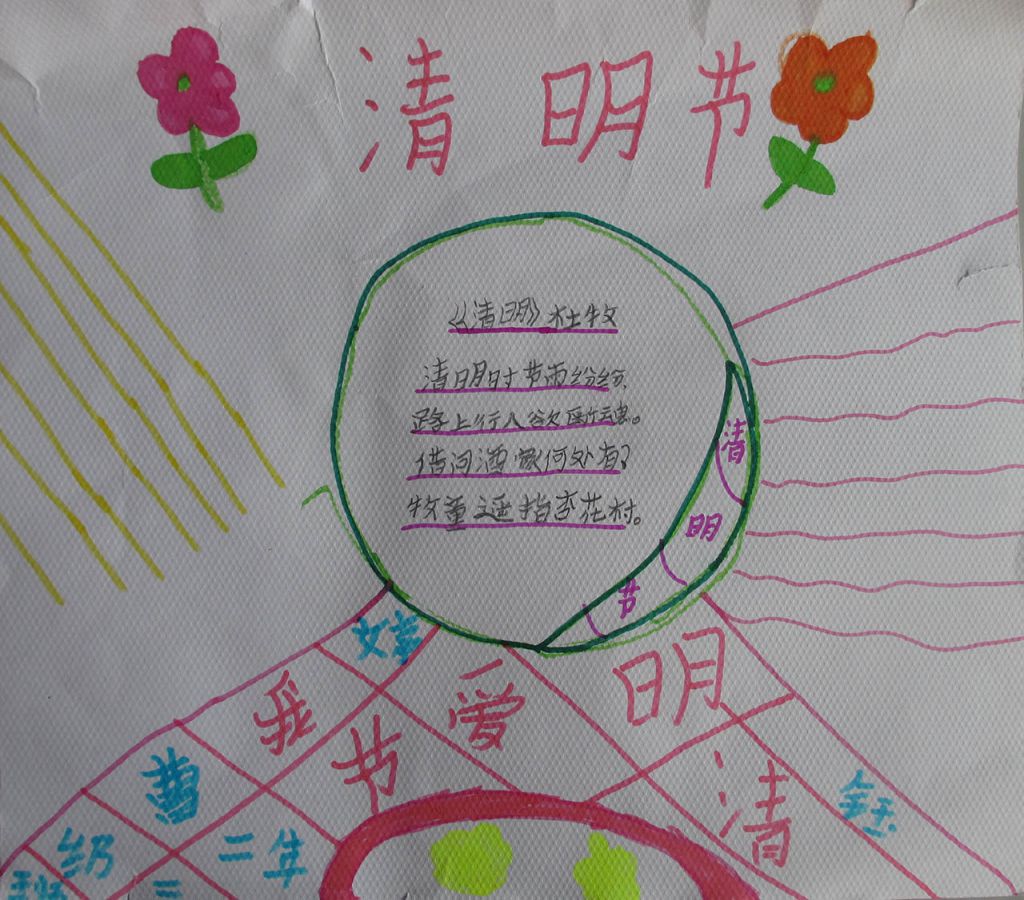 清明节
《清明》杜牧
清明时节雨纷纷，
路上行人欲断魂。
借问酒家何处有？
牧童遥指杏花村。
清
明
节
文章
我
爱
明
节
清
曹
钰
级
二年
三
班